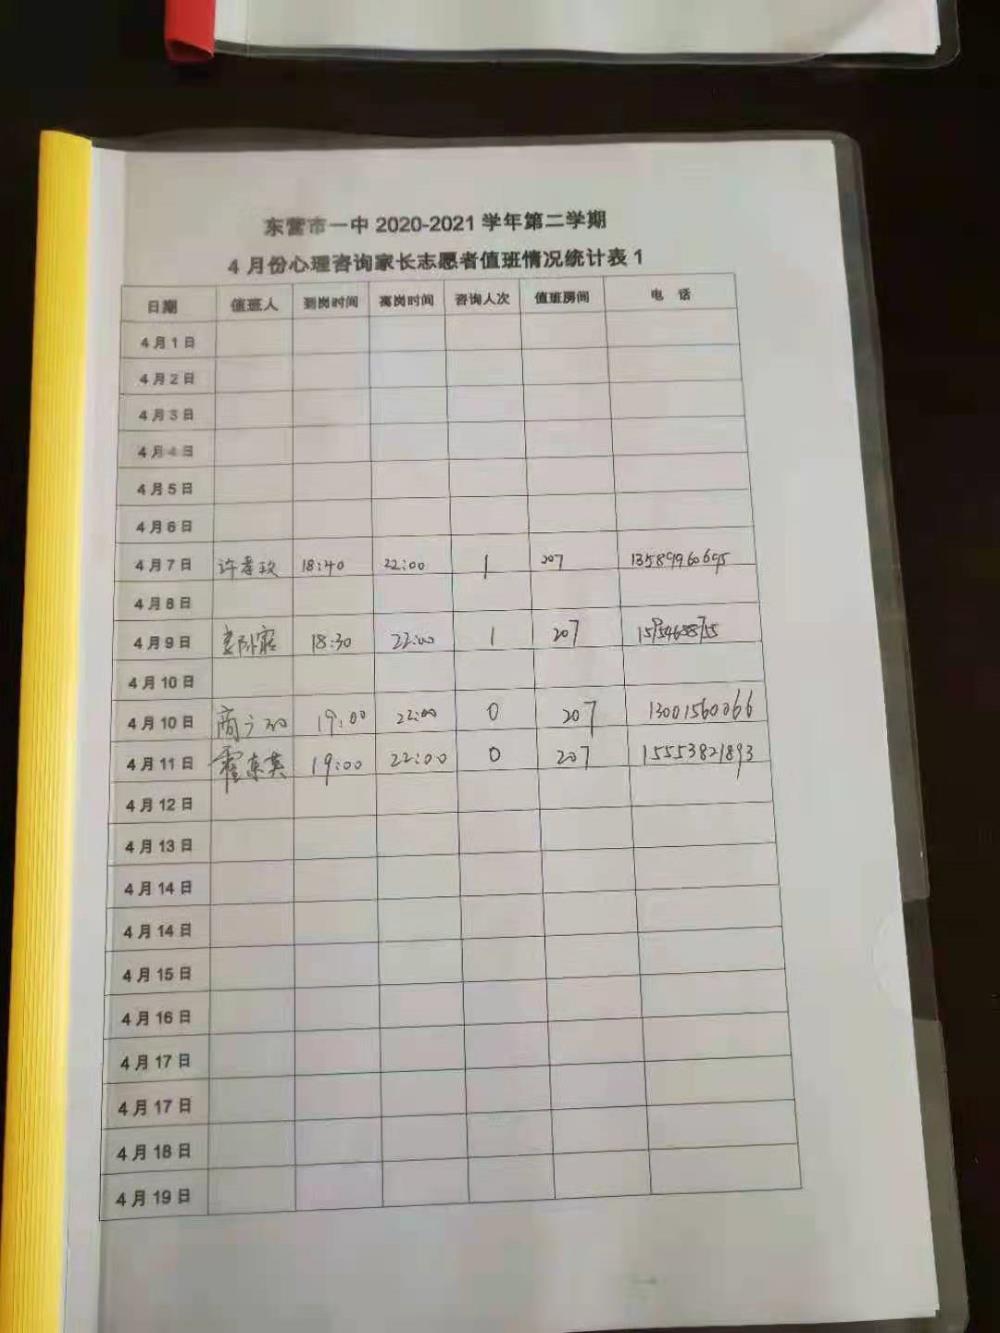 东营市一中 2020-2021 学年第二学期
4 月份心理咨询家长志愿者值班情况统计表 1
日期 值班人 到岗时间 离岗时间 咨询人次 值班房间 电 话
4 月 1 日
4 月 2 日
4 月 3 日
4 月 4 日
4 月 5 日
4 月 6 日
4 月 7 日 许孝玖 18:40 22:00 1 207 13589960695
4 月 8 日
4 月 9 日 18:30 22:00 1 207
4 月 10 日
4 月 10 日 19:00 22:00 0 207 13001560066
4 月 11 日 霍东英 19:00 22:00 0 207 15553821893
4 月 12 日
4 月 13 日
4 月 14 日
4 月 14 日
4 月 15 日
4 月 16 日
4 月 17 日
4 月 17 日
4 月 18 日
4 月 19 日